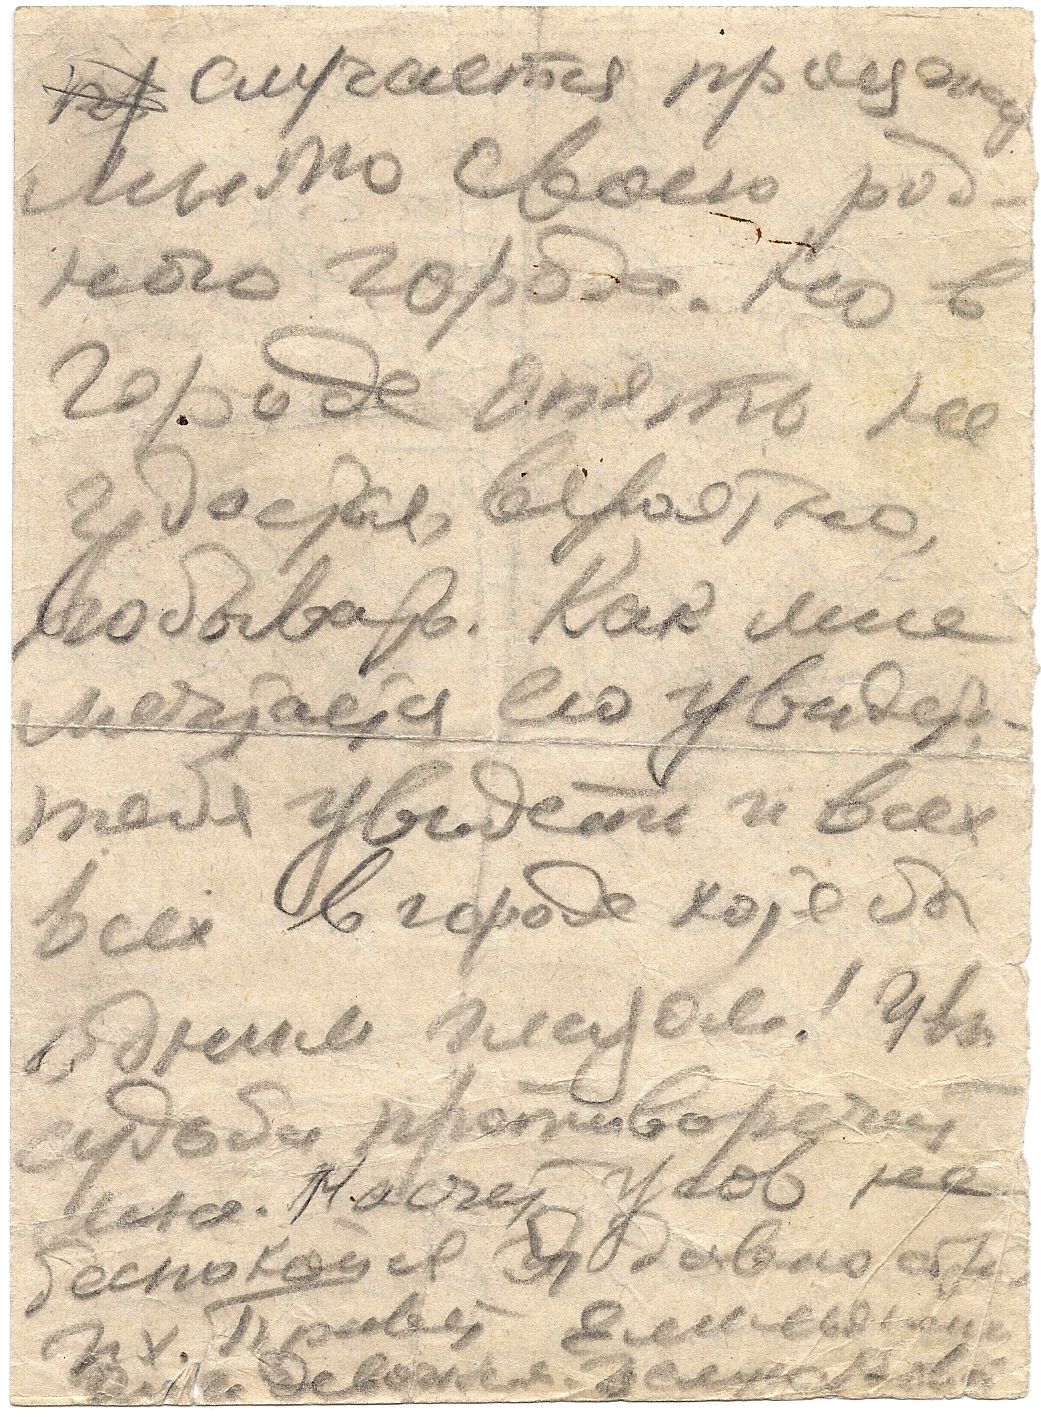 случается проезжа
мимо своего род-
ного города. Но в
городе опять не
удастся, вероятно,
побывать. Как мне
мечтается его увидеть,
тебя увидеть и всех
всех в городе хотя бы
одним глазом! Увы
судьба противоречит
мне. Насчет усов не
беспокойся Я давно
их. Привет
девочки.